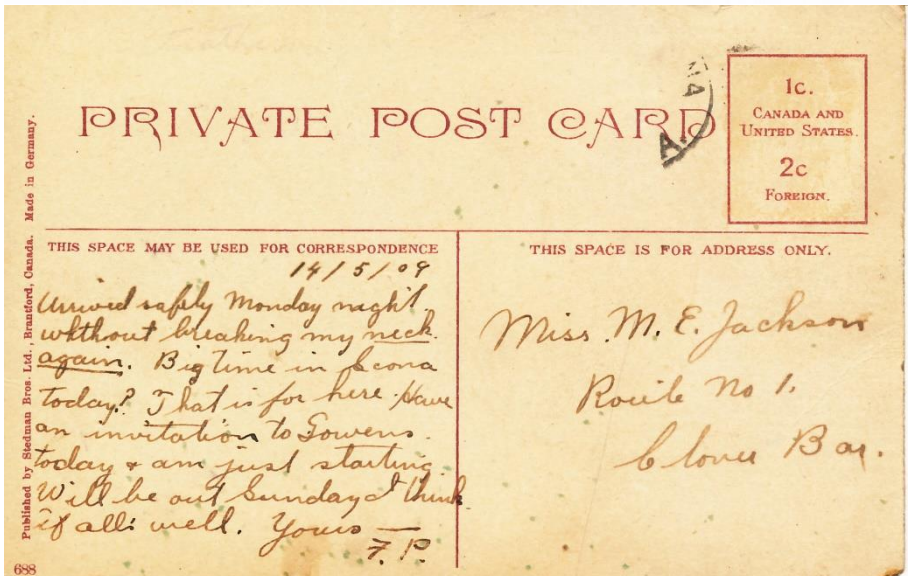 PRIVATE POST CARD
NA
A.
1c.
CANADA AND
UNITED STATES.
2c
FOREIGN.
Published by Stedman Bros. Ltd., Brantford, Canada. Made in Germany.
THIS SPACE MAY BE USED FOR CORRESPONDENCE
14/5/09
Arrived safely Monday night
whthout breaking my neck
again. Big time in Scona
today? That is for here. Have
an invitation to Gowens.
today & am just starting
Will be out Sunday I think
if all's well. Yours —
F. P.
THIS SPACE IS FOR ADDRESS ONLY.
Miss. M. E. Jackson
Route No 1.
Clover Bar.
688